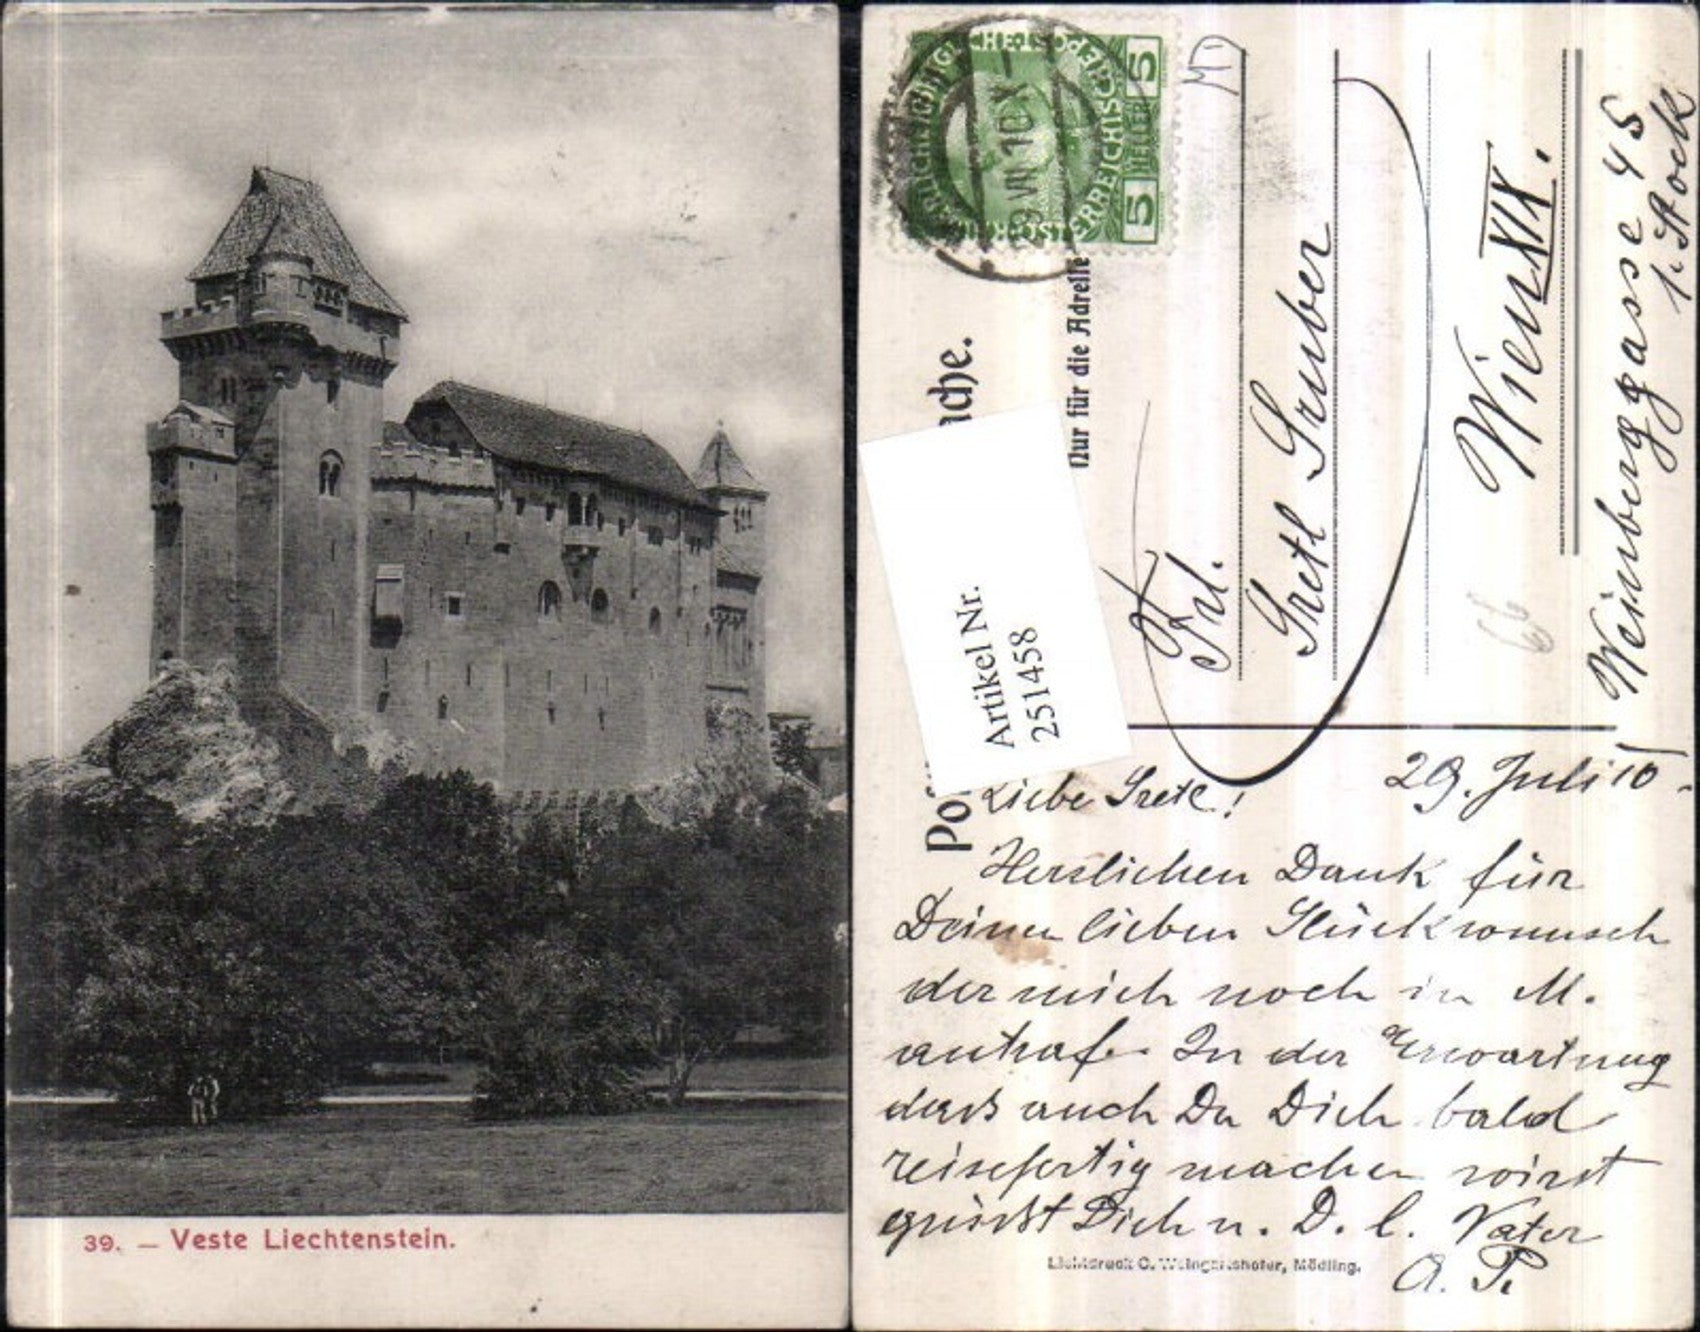 39. — Veste Liechtenstein.
5 HELLER 5
29 VII 10 X -
Nur für die Adresse
Artikel Nr.
251458
Frl.
Gretl Gruber
Wien XIX.
Weinberggasse 45
1. Stock
29. Juli 10.
Liebe Gretl!
Herzlichen Dank für
Deinen lieben Glückwunsch
der mich noch in M.
antraf. In der Erwartung
dass auch Du Dich bald
reisefertig machen wirst
grüsst Dich u. D. l. Vater
A. P.
Lichtdruck C. Weingartshofer, Mödling.